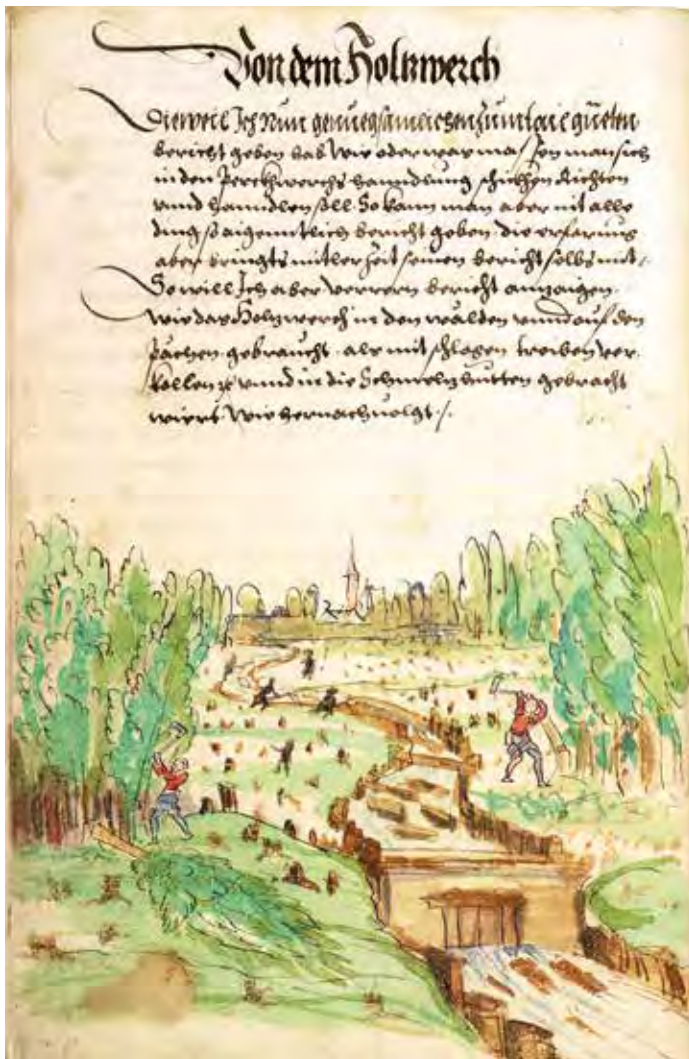 Von dem Holtzwerch
Dieweil Ich Nun genuegsamlichen zum tail gueten
bericht geben hab Wie oder was massen man sich
in den Perckhwerchs hanndlung schickhen Richten
vnnd hanndlen soll. So kann man aber nit alle
ding so aigenntlich bericht geben. die erfarung
aber bringts mitler Zeit seinen bericht selbs mit /
So will Ich aber verrern bericht anzaigen.
wie das Holzwerch in den wälden vnnd auf den
Pächen gebraucht. als mit schlagen treiben ver
kollen vnnd in die Schmelzhütten gebracht
wiert. Wie hernachuolgt /.